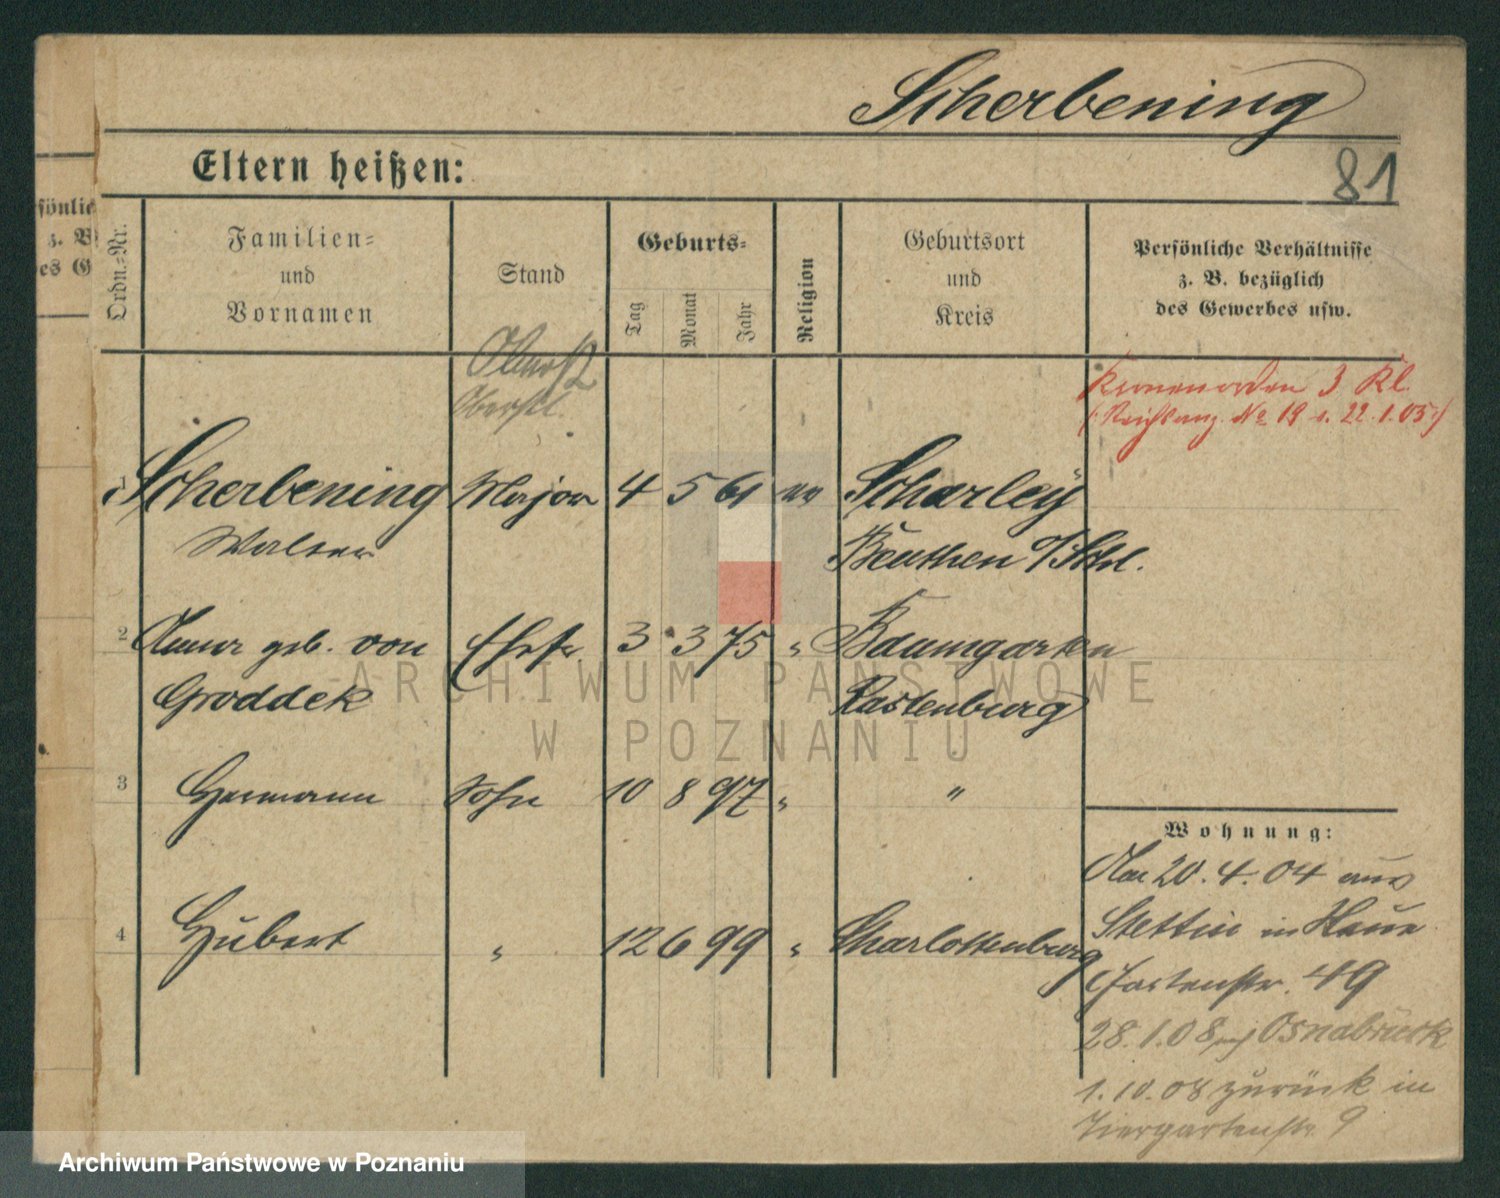 Scherbening
81
Eltern heißen:
Ordn.=Nr.
Familien=
und
Vornamen
Stand
Geburts=
Tag
Monat
Jahr
Religion
Geburtsort
und
Kreis
Persönliche Verhältnisse
z. B. bezüglich
des Gewerbes usw.
Oberst
Oberstl.
Kronenorden 3 Kl.
(Reichsanz. No 19 v. 22.1.05.)
1 Scherbening Major 4 5 61 ev Scharley
Walter Beuthen O/Schl.
2 geb. von Ehefr 3 3 75 " Baumgarten
Groddek Rastenburg
3 Hermann Sohn 10 8 97 " "
4 Hubert " 12 6 99 " Charlottenburg
Wohnung:
20.4.04 aus
Stettin in
Gartenstr. 49
28.1.08 Osnabrück
1.10.08 zurück in
Tiergartenstr 9
ARCHIWUM PAŃSTWOWE
W POZNANIU
Archiwum Państwowe w Poznaniu